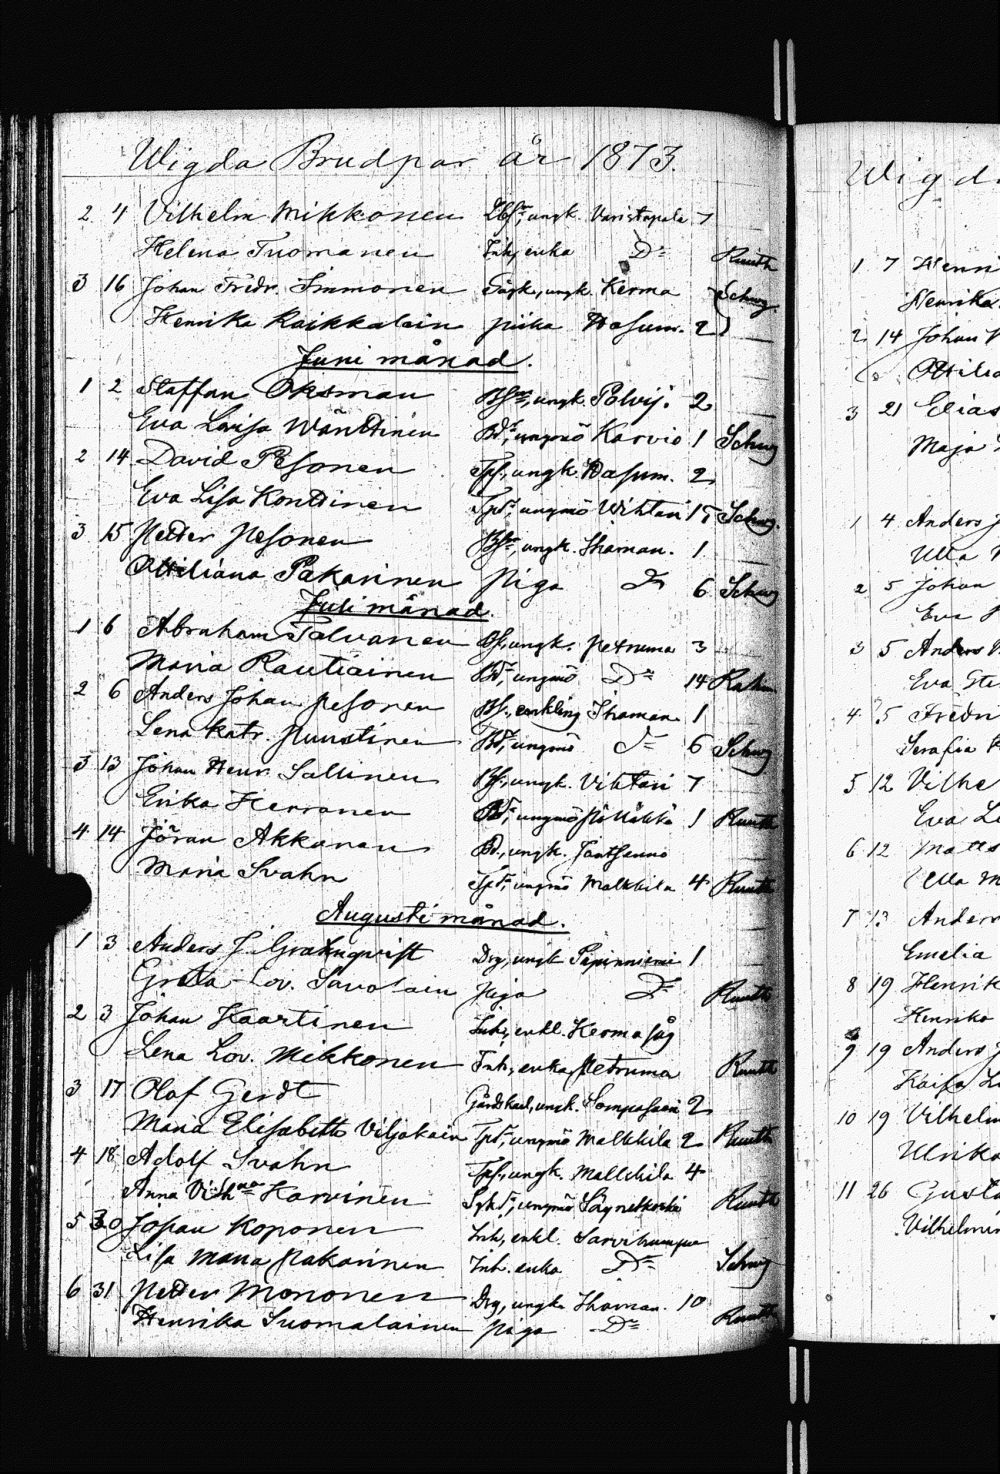 Wigda Brudpar år 1873.
2 4 Vilhelm Mikkonen ungk. Varistapala 7
Helena Tuomanen Inh, enka D:o Ruuth
3 16 Johan Fredr. Immonen ungk. Kerma Schwg.
Henrika Kaikkalain piika Hasum. 2
Juni månad.
1 2 Staffan Oksman ungk. Polvij. 2
Eva Lovisa Wänttinen Bdr, ungmö Karvio 1 Schwg
2 14 David Pesonen Tps, ungk. Hasum. 2
Eva Lisa Konttinen Tpdr, ungmö Wihtari 15 Schwg.
3 15 Petter Pesonen ungk. Ihaman. 1
Ottiliana Pakarinen Piga D:o 6 Schwg
Juli månad.
1 6 Abraham Talvanen Bs, ungk. Petruma 3
Maria Rautiainen Bdr, ungmö D:o 14 Rahm
2 6 Anders Johan Pesonen Bs, enkling Ihaman. 1
Lena Katr. Puustinen Bdr, ungmö D:o 6 Schwg
3 13 Johan Henr. Sallinen Bs, ungk. Vihtari 7
Erika Herranen Bdr, ungmö 1 Ruuth
4 14 Jöran Akkanen Bd., ungk.
Maria Svahn Tpdr, ungmö Malkkila 4 Ruuth
Augusti månad.
1 3 Anders J. Grahnqvist Drg, ungk Pepinniemi 1
Greta Lov. Savolain piga D:o Ruuth
2 3 Johan Kaartinen Inh, enkl. Kerma såg
Lena Lov. Mikkonen Inh, enka Petruma Ruuth
3 17 Olof Gerdt ungk. Sompasaari 2
Maria Elisabeth Viljakain Tpdr, ungmö Malkkila 2 Ruuth
4 18 Adolf Svahn Tps, ungk. Malkkila 4
Anna Vilhna Karvinen ungmö Ruuth
5 30 Johan Koponen Inh, enkl. Sarvikumpu
Lisa Maria Pakarinen Inh. enka D:o Schwg
6 31 Petter Mononen Drg, ungk. Ihaman. 10
Henrika Suomalainen piga D:o Ruuth
Wigd
1 7 Henri
Henrika
2 14 Johan
Ottilia
3 21 Elias
Maja
1 4 Anders J
Ulla
2 5 Johan
Eva
3 5 Anders
Eva Ste
4 5 Fredri
Serafia
5 12 Vilhe
Eva Li
6 12 Matts
Ulla M
7 13 Anders
Emelia
8 19 Henrik
Henrika
9 19 Anders J
Kaisa L
10 19 Vilhelm
Ulrika
11 26 Gusta
Vilhelmin